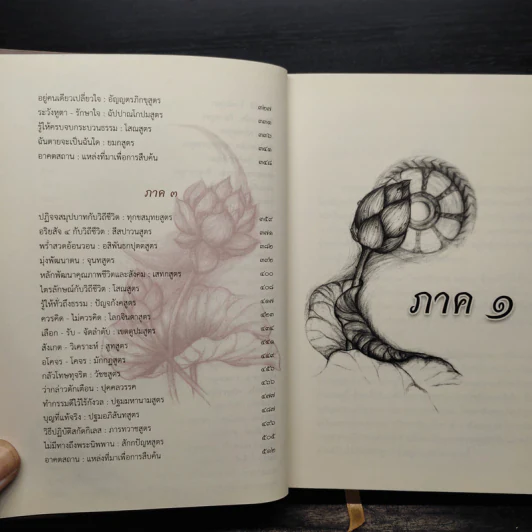 อยู่คนเดียวเปลี่ยวใจ : อัญญตรภิกขุสูตร ๓๒๗
ระวังหูตา - รักษาใจ : ฉัปปาณโกปมสูตร ๓๓๑
รู้ให้ครบจบกระบวนธรรม : โสณสูตร ๓๓๖
ฉันตายจะเป็นฉันใด : ยมกสูตร ๓๔๑
อาคตสถาน : แหล่งที่มาเพื่อการสืบค้น ๓๔๘
ภาค ๓
ปฏิจจสมุปบาทกับวิถีชีวิต : ทุกขสมุทยสูตร ๓๕๙
อริยสัจ ๔ กับวิถีชีวิต : สีสปาวนสูตร
พร่ำสวดอ้อนวอน : อสิพันธกปุตตสูตร ๓๘๒
มุ่งพัฒนาตน : จุนทสูตร ๓๙๒
หลักพัฒนาคุณภาพชีวิตและสังคม : เสทกสูตร ๔๐๐
ไตรลักษณ์กับวิถีชีวิต : โสณสูตร ๔๐๘
รู้ให้ทั่วถึงธรรม : ปัญจกังคสูตร ๔๑๗
ควรคิด - ไม่ควรคิด : โลกจินตาสูตร ๔๒๓
เลือก - รับ - จัดลำดับ : เขตตูปมสูตร ๔๓๑
สังเกต - วิเคราะห์ : สูทสูตร ๔๔๑
อโคจร - โคจร : มักกฏสูตร ๔๔๙
กลัวโทษทุจริต : วัชชสูตร ๔๕๖
ว่ากล่าวตักเตือน : ปุคคลวรรค ๔๖๖
ทำกรรมดีไว้ไร้กังวล : ปฐมมหานามสูตร ๔๗๗
บุญที่แท้จริง : ปฐมอภิสันทสูตร ๔๘๗
วิธีปฏิบัติสกัดกิเลส : ภารทวาชสูตร ๔๙๖
ไม่มีทางถึงพระนิพพาน : สักกปัญหสูตร ๕๐๕
อาคตสถาน : แหล่งที่มาเพื่อการสืบค้น ๕๑๒
ภาค ๑